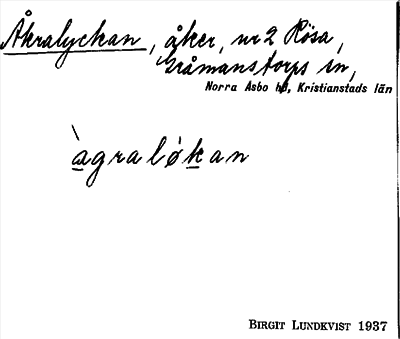 Åkralyckan, åker, nr 2 Rösa,
Gråmanstorps sn,
Norra Åsbo hd, Kristianstads län
àgraløkan
BIRGIT LUNDKVIST 1937